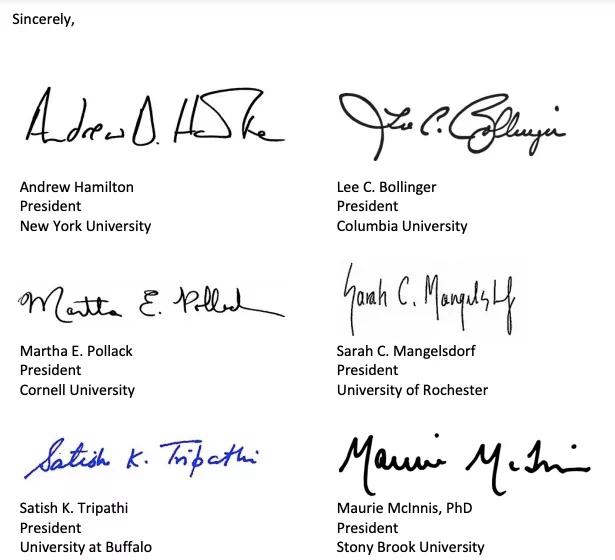 Sincerely,
Andrew D. Ha
Lee C. Bollinger
Andrew Hamilton
President
New York University
Lee C. Bollinger
President
Columbia University
Martha E. Pollack
Sarah C. Mangelsdorf
Martha E. Pollack
President
Cornell University
Sarah C. Mangelsdorf
President
University of Rochester
Satish K. Tripathi
Maurie McInnis
Satish K. Tripathi
President
University at Buffalo
Maurie McInnis, PhD
President
Stony Brook University